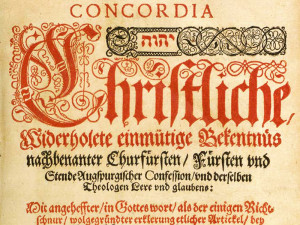 CONCORDIA
יהוה
Christliche/
Widerholete einmütige Bekentnüs
nachbenanter Churfürsten/ Fürsten vnd
Stende Augspurgischer Confession/ vnd derselben
Theologen Lere vnd glaubens:
Mit angeheffter/ in Gottes wort/ als der einigen Richt-
schnur/ wolgegründter erklerung etlicher Artickel/ bey